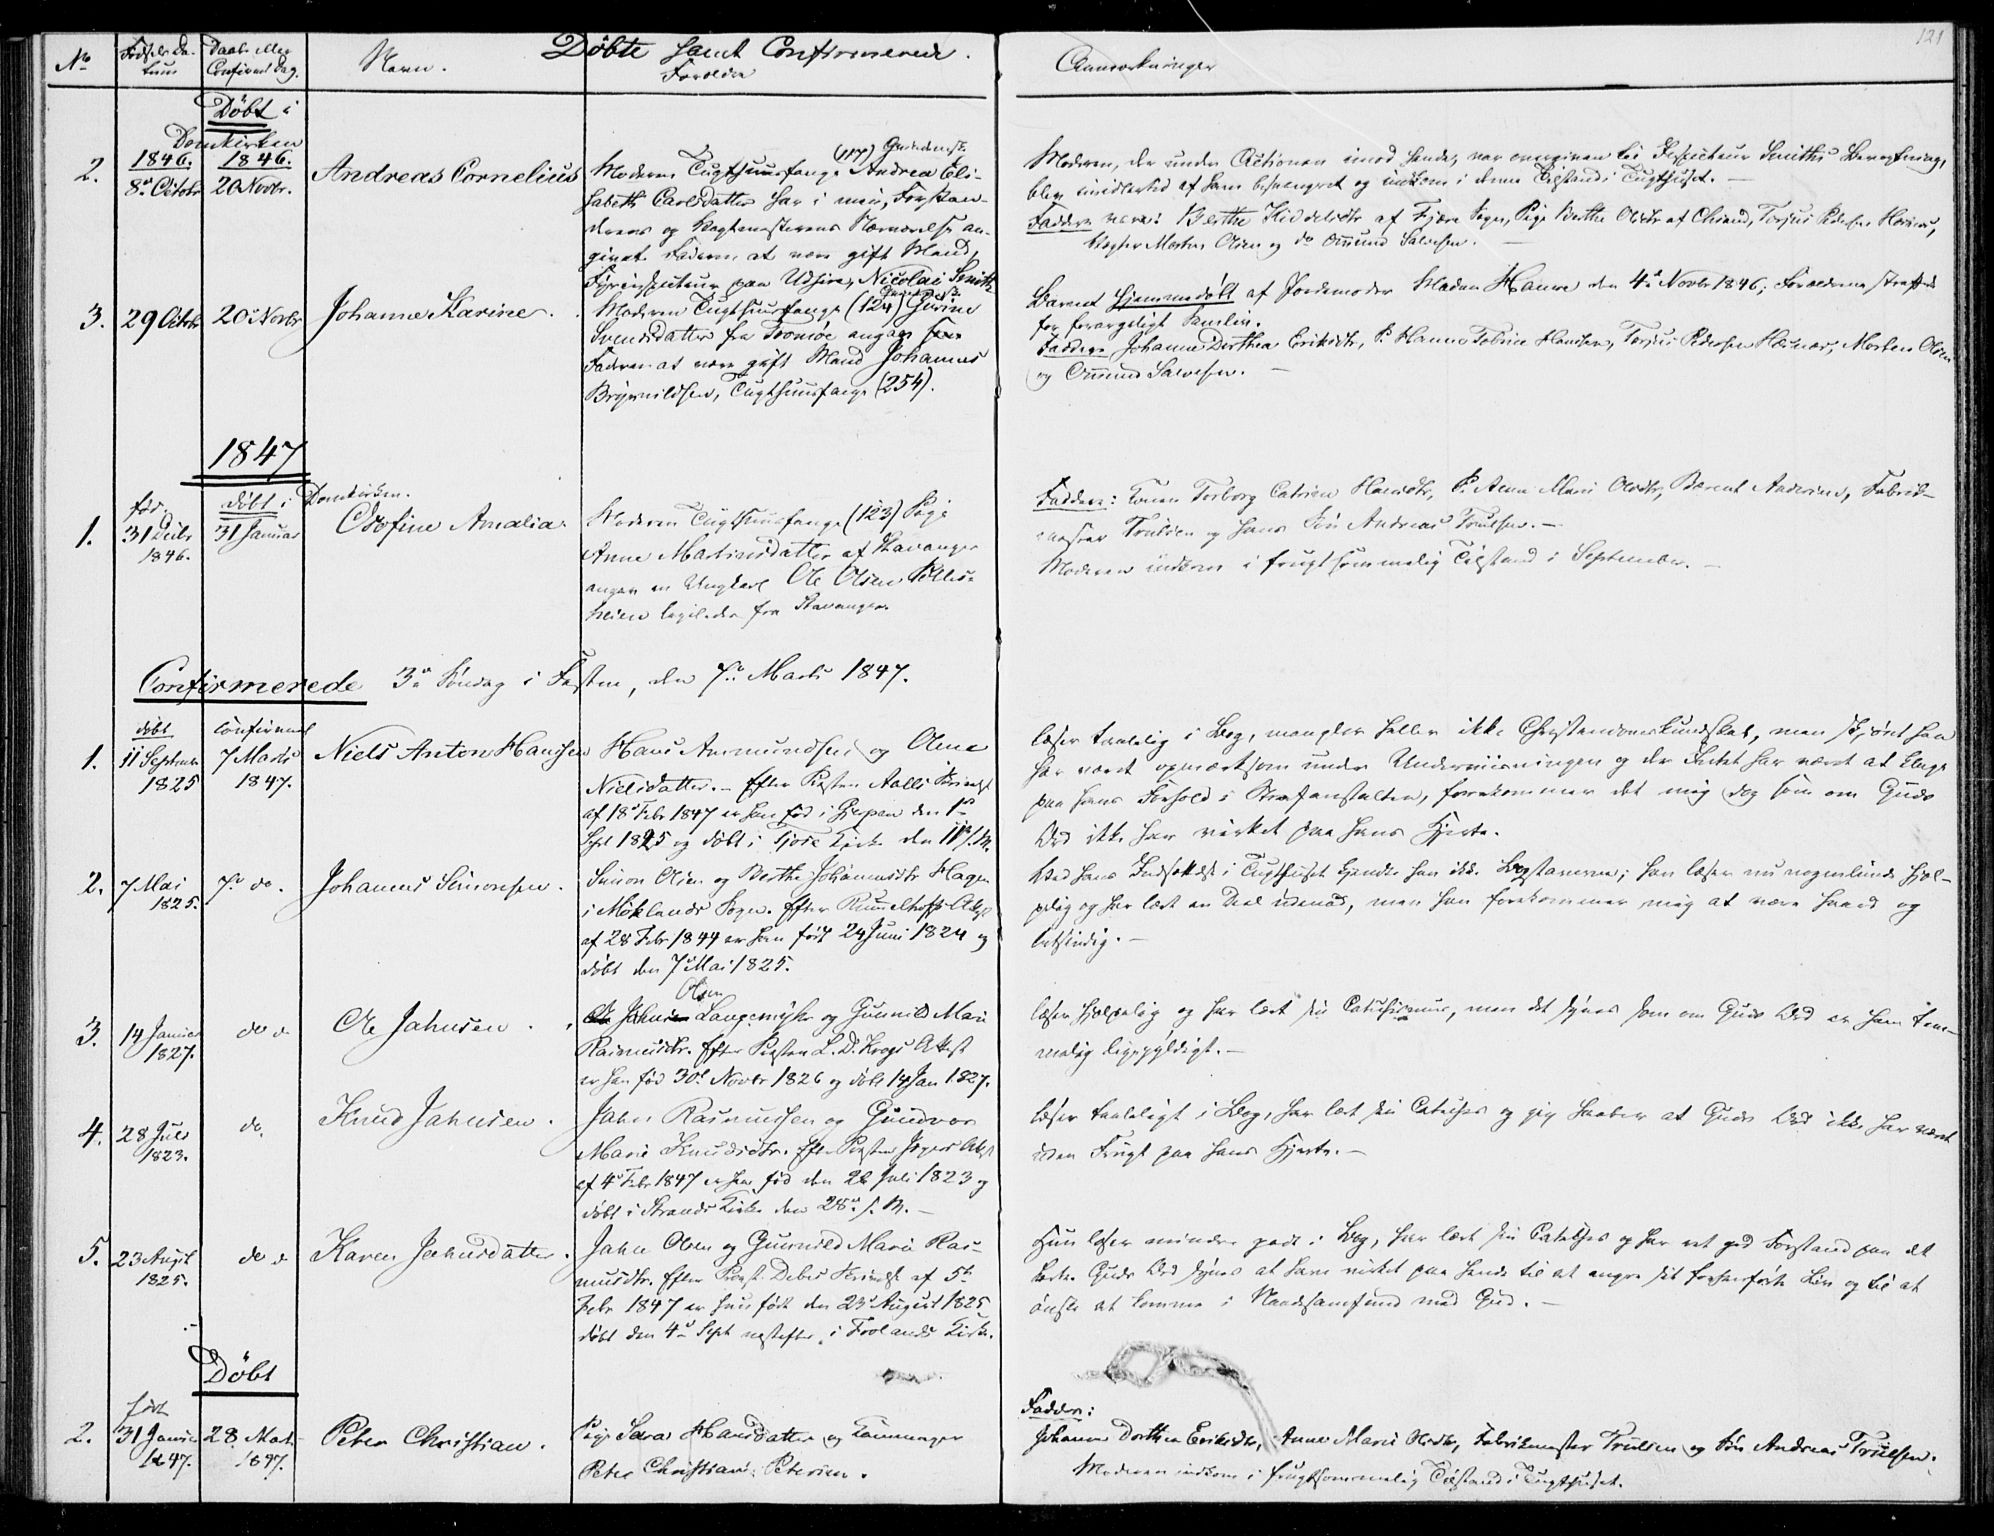 121
Døbte samt Confirmerede.
No Fødsels Da-
tum
Daabs eller
Confirmat. Dag.
Navn.
Forældre
Anmærkninger
Døbt i
Domkirken
2. 1846. 1846.
8de Octobr 20 Novbr.
Andreas Cornelius
Moderen Tugthuusfange (117) Andrea Eli-
sabeth Carlsdatter har i min, Forstan-
derens og Vagtmesterens Nærværelse an-
givet Faderen at være gift Mand,
Fyrinspecteur paa Udsire, Nicolai Smith
Moderen, der under Actionen imod hende, var overgiven til Inspecteur Smiths Bevogtning,
blev imidlertid af ham besvangret og indkom i denne Tilstand i Tugthuset. —
Faddere vare: Berthe af Fjære Sogn, Pige Berthe Olsdtr af Chrsand, Torjus Pedersen
Morten Olsen og do Omund Salvesen. —
3. 29 Octobr 20de Novbr Johanne Karine.
Moderen Tugthuusfange (124) Gurine
Svendsdatter fra Tromøe angav
Faderen at være gift Mand Johannes
Brynildsen, Tugthuusfange (254).
Barnet hjemmedøbt af Jordemoder Madam Hanne den 4de Novbr 1846, Forældrene straffede
for forargeligt Samliv.
Faddere Johanne Dorthea Eriksdtr, P. Hanne Tobine Hansen, Torjus Pedersen, Morten Olsen
og Omund Salvesen. —
1847
fød. døbt i Domkirken.
1. 31 Decbr
1846.
31 Januar
Odofine Amalia
Moderen Tugthuusfange (123) Pige
Anne Martinsdatter af Stavanger
angav en Ungkarl Ole Olsen
heien fra Stavanger.
Faddere: Konen Torborg Catrine, P. Anne Marie Olsdtr, Bærent Andersen, Fabrik-
mester Trulsen og hans Søn Andreas Trulsen. —
Moderen indkom i frugtsommelig Tilstand i September. —
Confirmerede 3de Søndag i Fasten, den 7de Marts 1847.
døbt confirmeret
1. 11 Septembr
1825
7 Marts
1847.
Niels Anton Hansen
Hans Amundsen og Olene
Nielsdatter. — Efter Præsten Aalls
af 18de Febr 1847 er han fød i Gjerpen den 1ste
Sept 1825 og døbt i Kirke den 11te s. M.
læser taalelig i Bog, mangler heller ikke Christendomskundskab, men skjønt han
har været opmærksom under Underviisningen og der Intet har været at klage
paa hans Forhold i Strafanstalten, forekommer det mig dog som om Guds
Ord ikke har virket paa hans Hjerte.
2. 7 Mai
1825.
7de do. Johannes Simonsen.
Simon Olsen og Berthe Johannesdtr Hagen
i Sogn. Efter Rummelhoffs Attest
af 28 Febr 1844 er han født 24 Juni 1824 og
døbt den 7de Mai 1825.
Ved hans Indsættelse i Tugthuset kjendte han ikke Bogstaverne; han læser nu nogenlunde hjel-
pelig og har lært en Deel udenad, men han forekommer mig at være haard og
letsindig. —
3. 14 Januar
1827.
do Ole Jahnsen.
Olsen
Langemyhr og Gunnild Marie
Rasmusdtr. Efter Præsten L. D. Krogs Attest
er han fød 30te Novbr 1826 og døbt 14 Jan 1827.
læser hjelpelig og har lært sin Catechismus, men det synes som om Guds Ord er ham tem-
melig ligegyldigt. —
4. 28 Juli
1823.
do. Knud Jahnsen.
Jahn Rasmussen og Gundvor
Marie Knudsdtr. Efter Præsten Attest
af 4de Febr 1847 er han fød den 26 Juli 1823 og
døbt i Strands Kirke den 28de s. M. —
læser taaleligt i Bog, har lært sin Catechis og jeg haaber at Guds Ord ikke har været
uden Frugt paa hans Hjerte. —
5. 23 August
1825.
do Karen Jahnsdatter.
Jahn Olsen og Gunnild Marie Ras-
musdtr. Efter Provst Debes af 5te
Febr 1847 er hun født den 23 August 1825
døbt den 4de Sept næstefter i Frolands Kirke.
Hun læser mindre godt i Bog, har lært sin Catechis og har ret god Forstand paa det
lærte. Guds Ord synes at have virket paa hende til at angre sit forhen førte Liv og til at
ønske at komme i Naadesamfund med Gud. —
Døbt
født
2. 31 Januar
1847.
28 Marts
1847.
Peter Christian.
Pige Sara Hansdatter og
Peter Christian Petersen.
Faddere:
Johanne Dorthea Eriksdtr, Anne Marie Olsdtr, Fabrikmester Trulsen og Søn Andreas Trulsen.
Moderen indkom i frugtsommelig Tilstand i Tugthuset.